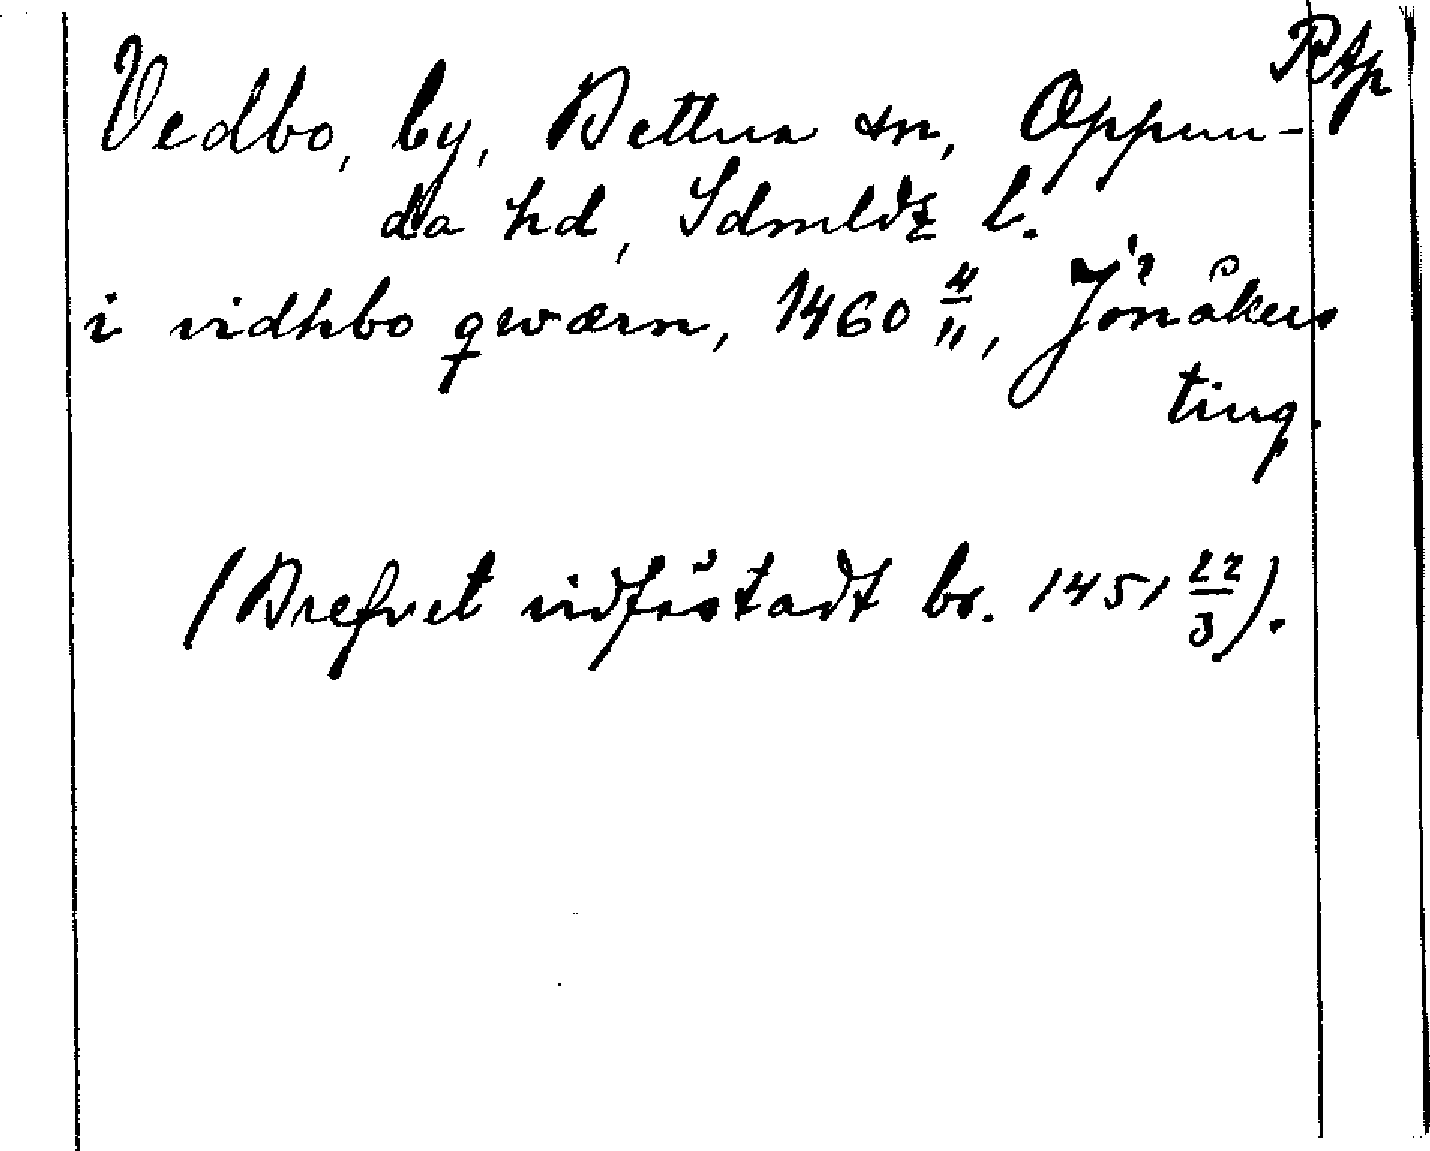 Rtp
Vedbo, by, Bettna sn, Oppun-
da hd, Sdmldz l.
i vidhbo qwærn, 1460 4/11, Jönåkers
ting.
(Brefvet vidfästadt br. 1451 22/3).